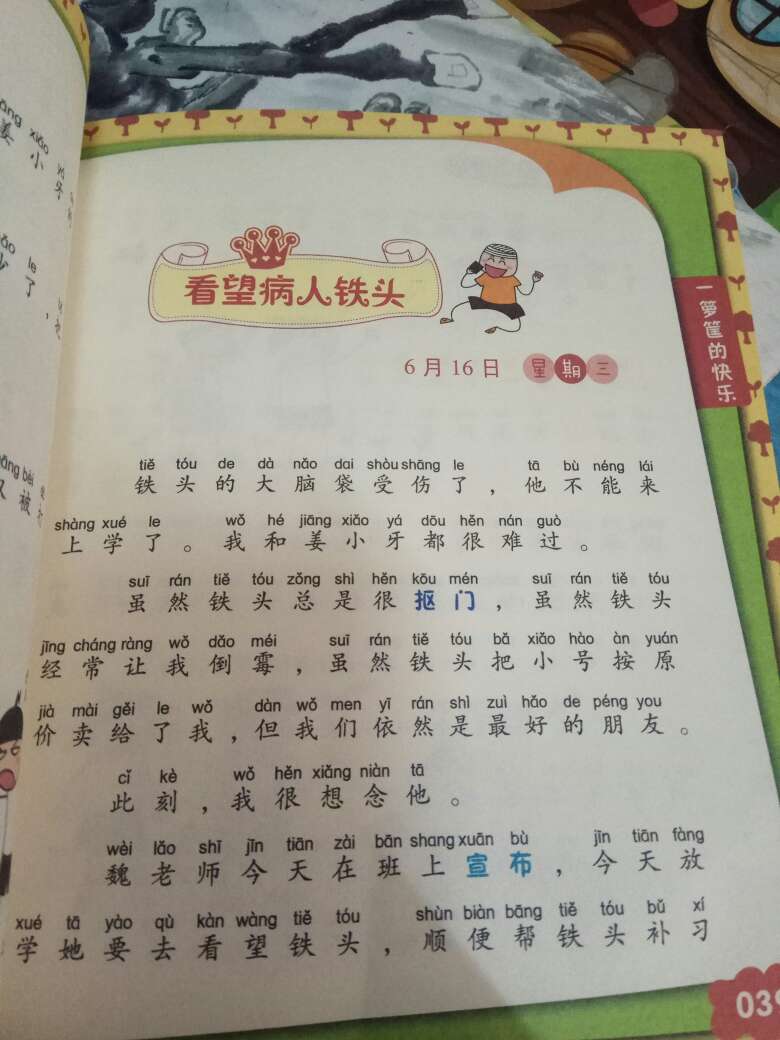 看望病人铁头
6月16日 星期三
一箩筐的快乐
tiě tóu de dà nǎo dai shòu shāng le tā bù néng lái
铁头的大脑袋受伤了，他不能来
shàng xué le wǒ hé jiāng xiǎo yá dōu hěn nán guò
上学了。我和姜小牙都很难过。
suī rán tiě tóu zǒng shì hěn kōu mén suī rán tiě tóu
虽然铁头总是很抠门，虽然铁头
jīng cháng ràng wǒ dǎo méi suī rán tiě tóu bǎ xiǎo hào àn yuán
经常让我倒霉，虽然铁头把小号按原
jià mài gěi le wǒ dàn wǒ men yī rán shì zuì hǎo de péng you
价卖给了我，但我们依然是最好的朋友。
cǐ kè wǒ hěn xiǎng niàn tā
此刻，我很想念他。
wèi lǎo shī jīn tiān zài bān shang xuān bù jīn tiān fàng
魏老师今天在班上宣布，今天放
xué tā yào qù kàn wàng tiě tóu shùn biàn bāng tiě tóu bǔ xí
学她要去看望铁头，顺便帮铁头补习